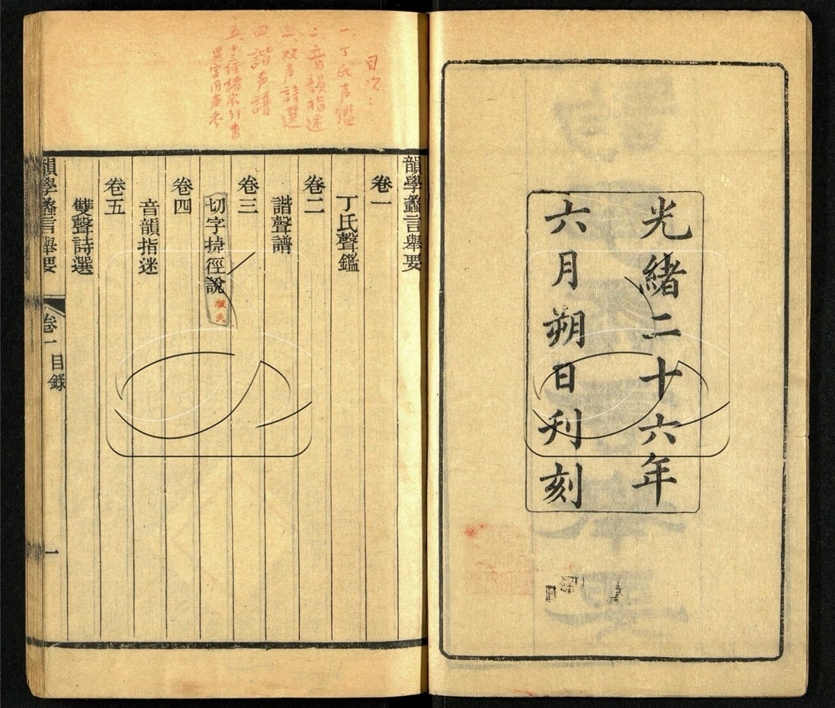 光緒二十六年
六月朔日刋刻
韻學蠡言舉要
卷一
丁氏聲鑑
卷二
諧聲譜
卷三
切字捷徑說
卷四
音韻指迷
卷五
雙聲詩選
韻學蠡言舉要
卷一目錄
一
目次：
一、丁氏声鑑
二、音韻指迷
三、双声詩選
四、諧声譜